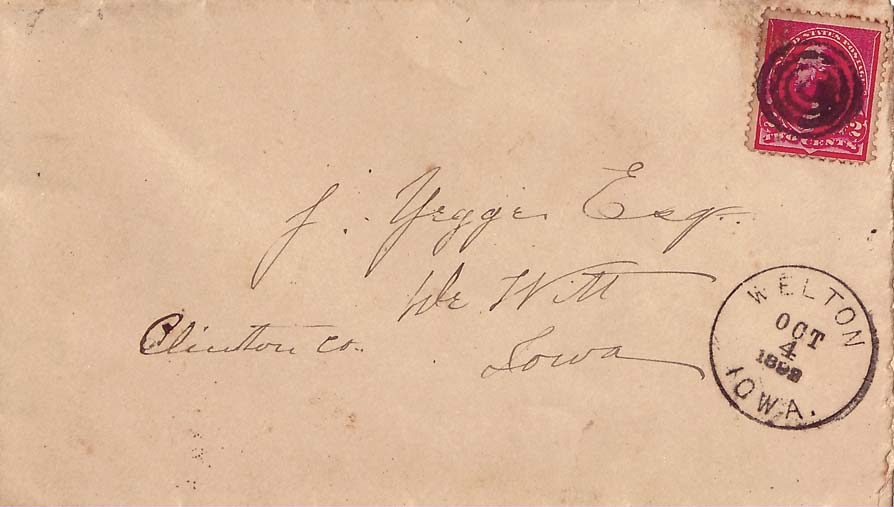 UNITED STATES POSTAGE
2 2
TWO CENTS
J. Yegge Esq.
De Witt
Clinton Co. Iowa
WELTON
OCT
4
IOWA.